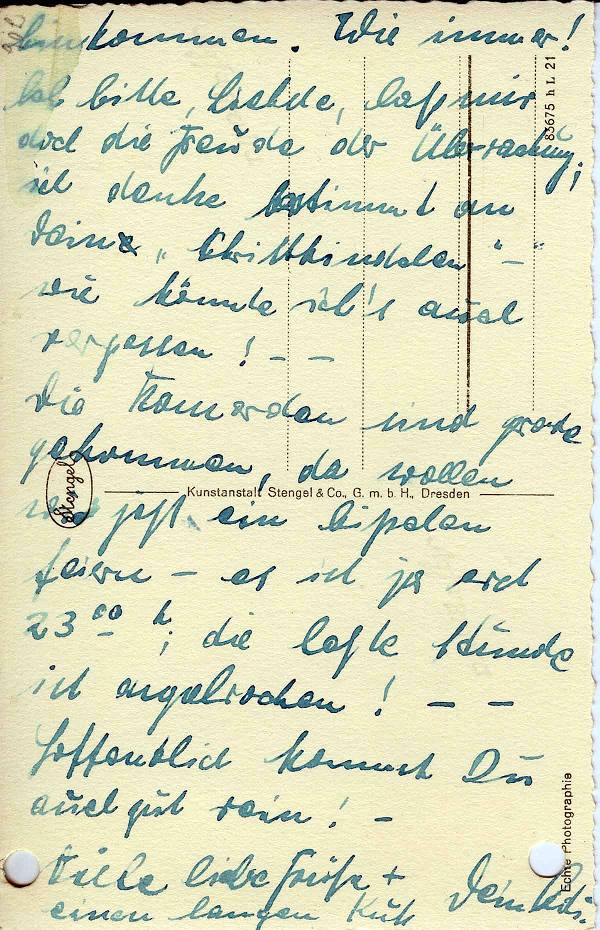 hinkommen. Wie immer!
Ich bitte, Liebste, laß mir
doch die Freude der Überraschung;
ich denke bestimmt an
Deine „Christkindelen" –
wie könnte ich's auch
vergessen! – –
Die Kameraden sind grade
gekommen, da wollen
wir jetzt ein bißchen
feiern – es ist ja erst
23⁰⁰ h, die letzte Stunde
ist angebrochen! – –
Hoffentlich kommst Du
auch gut rein! –
Viele liebe Grüße +
einen langen Kuß Dein
83675 h L 21
Stengel
Kunstanstalt Stengel & Co., G. m. b. H., Dresden
Echte Photographie